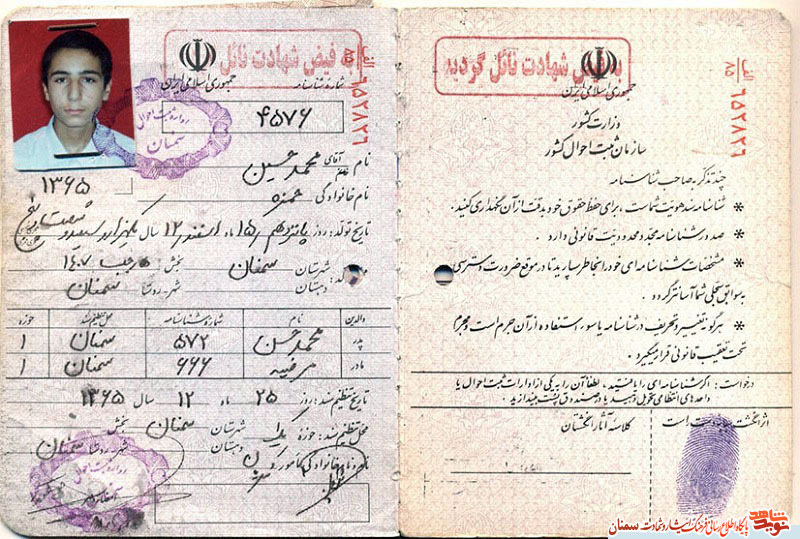 به فیض شهادت نائل گردید
جمهوری اسلامی ایران
وزارت کشور
سازمان ثبت احوال کشور
چند تذکر به صاحب شناسنامه
* شناسنامه سند هویت شماست ، برای حفظ حقوق خود بدقت از آن نگهداری کنید .
* صدور شناسنامه مجدد محدودیت قانونی دارد .
* مشخصات شناسنامه‌ای خود را بخاطر بسپارید تا در موقع ضرورت دسترسی
به سوابق سجلی شما آسانتر گردد .
* هرگونه تغییر و تحریف در شناسنامه یا سوء استفاده از آن جرم است و مجرم
تحت تعقیب قانونی قرار میگیرد .
درخواست : اگر شناسنامه‌ای را یافتید ، لطفاً آن را به یکی از ادارات ثبت احوال یا
واحدهای انتظامی تحویل دهید یا در صندوق پست بیندازید .
اثر انگشت سبابه دست است
کلاسه آثار انگشتان
الف ۸۵ ۶۵۲۸۲۶
فیض شهادت نائل
جمهوری اسلامی ایران
شماره شناسنامه
۴۵۷۶
اداره ثبت احوال سمنان
۱۳۶۵
نام آقای محمد حسین
نام خانوادگی حمزه
تاریخ تولد: روز پانزدهم / ۱۵ ماه اسفند / ۱۲ سال یکهزار و سیصد و شصت و پنج
شهرستان سمنان بخش
دهستان شهر - روستا سمنان
والدین نام شماره شناسنامه محل تنظیم سند حوزه
پدر محمد حسن ۵۷۲ سمنان ۱
مادر مرضیه ۶۶۶ سمنان ۱
تاریخ تنظیم سند: روز ۲۵ ماه ۱۲ سال ۱۳۶۵
محل تنظیم سند: حوزه شهرستان سمنان بخش
دهستان شهر - روستا سمنان
نام و نام خانوادگی مامور
نوید شاهد
پایگاه اطلاع رسانی فرهنگ ایثار و شهادت سمنان